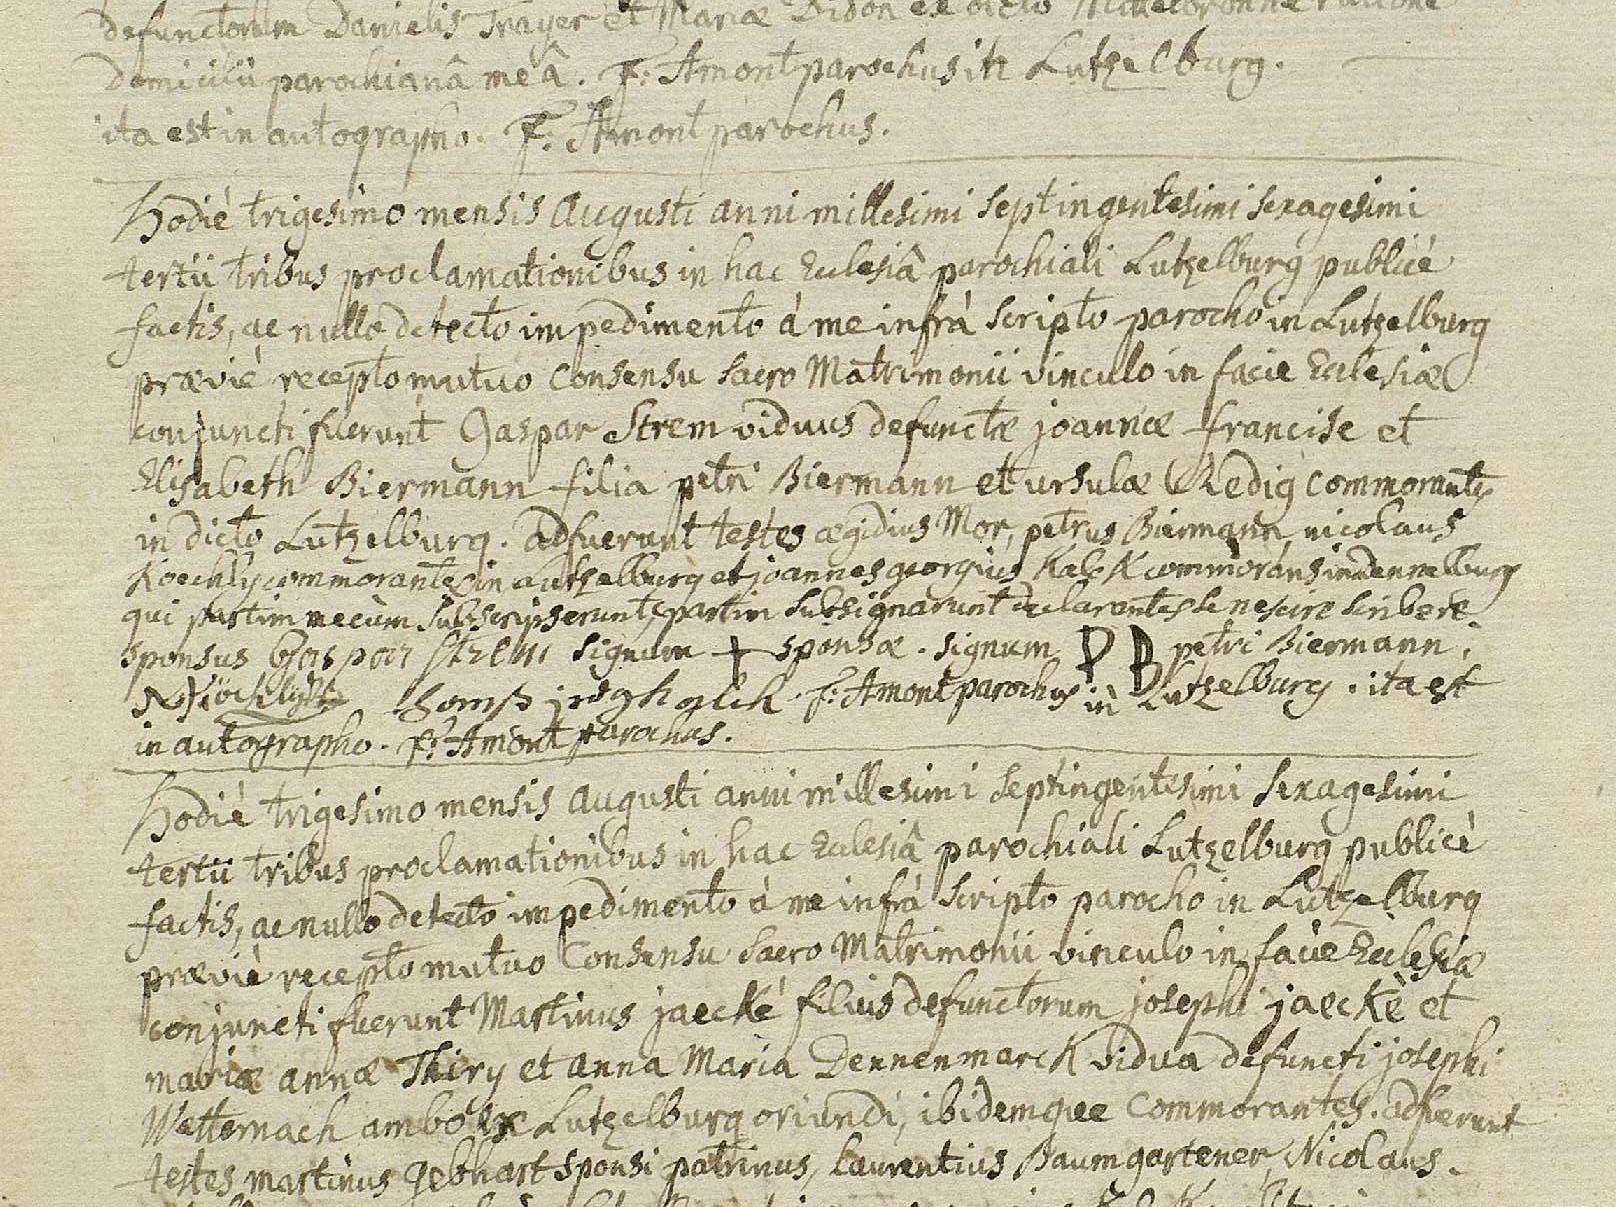 defunctorum Danielis Trayer et Mariæ Didon ex dicto
domicilii parochianâ meâ. F: Amont parochus in Lutzelburg.
ita est in autographo. F: Amont parochus.
Hodiè trigesimo mensis Augusti anni millesimi septingentesimi sexagesimi
tertii tribus proclamationibus in hac Ecclesiâ parochiali Lutzelburg publicè
factis, ac nullo detecto impedimento à me infrà scripto parocho in Lutzelburg
præviè recepto mutuo consensu sacro Matrimonii vinculo in facie Ecclesiæ
conjuncti fuerunt Gaspar Strem viduus defunctæ joannæ francise et
Elisabeth Biermann filia petri Biermann et ursulæ Redig commorantes
in dicto Lutzelburg. adfuerunt testes ægidius Mor, petrus Biermann, nicolaus
Koechly commorantes in Lutzelburg et joannes georgius Kalck commorans in dennelburg
qui partim mecùm subscripserunt, partim subsignarunt declarantes se nescire scribere.
sponsus Gaspar Strem signum + sponsæ. signum P B petri Biermann.
F: Amont parochus in Lutzelburg. ita est
in autographo. F: Amont parochus.
Hodiè trigesimo mensis Augusti anni millesimi septingentesimi sexagesimi
tertii tribus proclamationibus in hac Ecclesiâ parochiali Lutzelburg publicè
factis, ac nullo detecto impedimento à me infrà scripto parocho in Lutzelburg
præviè recepto mutuo consensu sacro Matrimonii vinculo in facie Ecclesiæ
conjuncti fuerunt Martinus jaecké filius defunctorum josephi jaeckè et
mariæ annæ Thiry et anna Maria Dennenmarck vidua defuncti josephi
Wetternach ambo ex Lutzelburg oriundi, ibidemque commorantes. adfuerunt
testes martinus Gebhart sponsi patrinus, Laurentius Baumgartener, Nicolaus